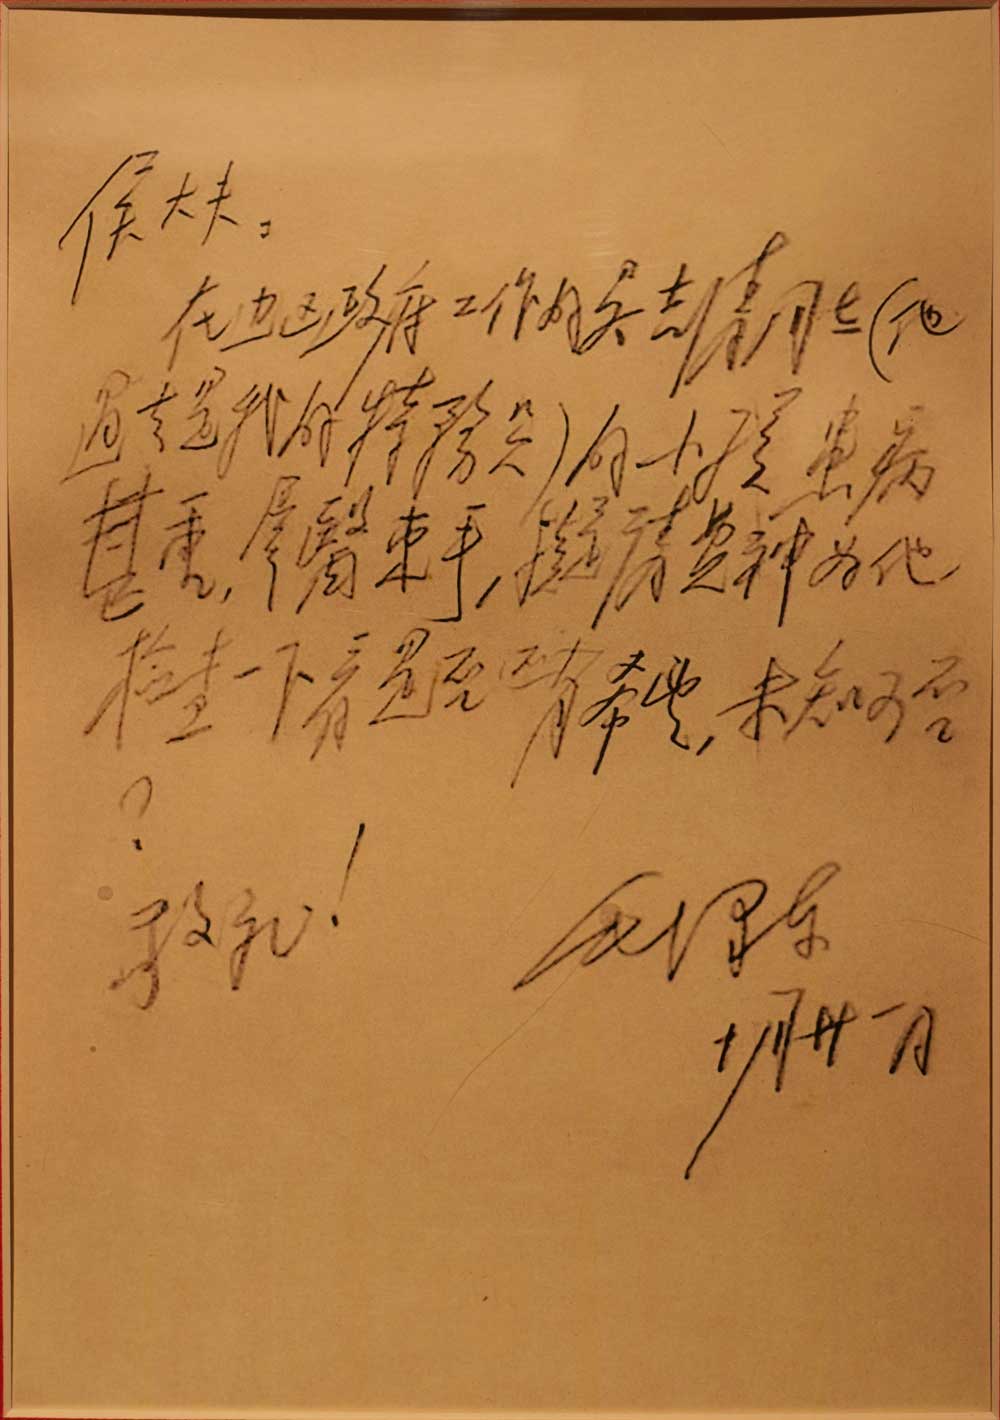 侯大夫：
在边区政府工作的吴吉清同志（他
过去是我的特務员）的小孩患病
甚重，群醫束手，擬請費神为他
检查一下看是否还有希望，未知可否
？
敬礼！
毛泽东
十一月廿一日